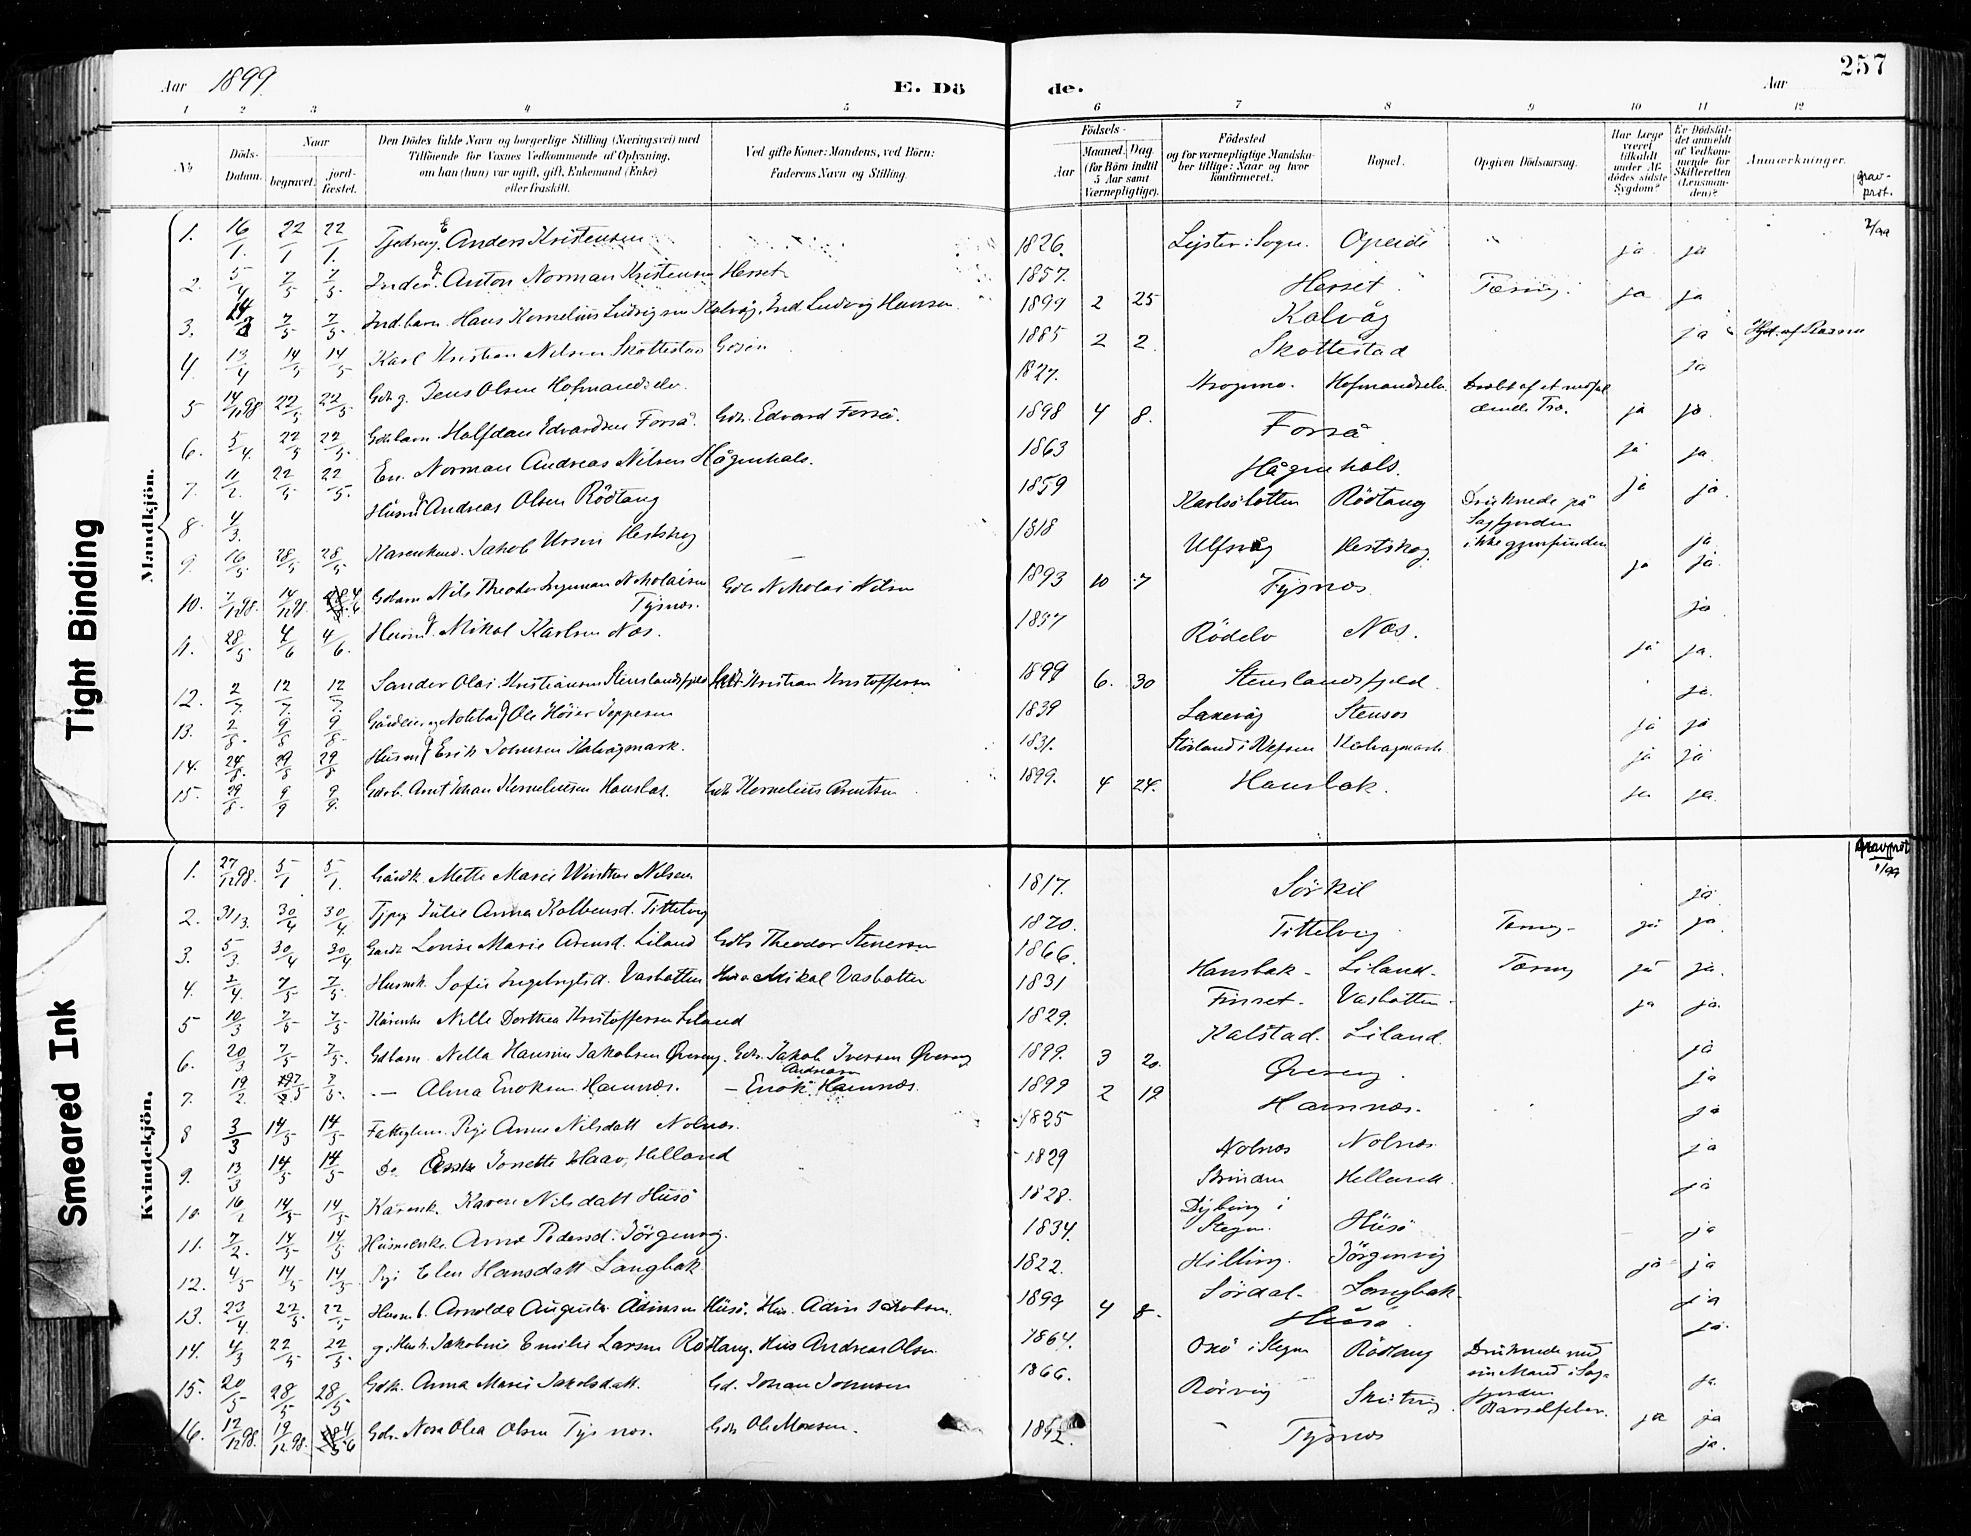 257
Aar 1899
E. Dö de.
Aar
1 2 3 4 5 6 7 8 9 10 11 12
No
Döds-Datum.
Naar
begravet.
jord-fæstet.
Den Dödes fulde Navn og borgerlige Stilling (Næringsvei) med
Tilföiende for Voxnes Vedkommende af Oplysning,
om han (hun) var ugift, gift, Enkemand (Enke)
eller fraskilt.
Ved gifte Koner: Mandens, ved Börn:
Faderens Navn og Stilling.
Födsels-
Aar
Maaned. Dag
(for Börn indtil
5 Aar samt
Værnepligtige).
Födested
og for værnepligtige Mandska-
ber tillige: Naar og hvor
konfirmeret.
Bopel.
Opgiven Dödsaarsag.
Har Læge
været
tilkaldt
under Af-
dödes sidste
Sygdom?
Er Dödsfal-
det anmeldt
af Vedkom-
mende for
Skifteretten
(Lensman-
den)?
Anmærkninger.
grav-
prot.
Mandkjön.
1. 16/1. 22/1 22/1. Anders Kristensen 1826. Sogn. Opeide ja ja 2/99
2. 5/4 7/5 7/5. Anton Norman Kristensen Hesset 1857. Hesset Tæring. ja ja
3. 7/5 7/5. Ind.barn. Hans Kornelius Ludvigsen Kalvåg. Ind. Ludvig Hansen 1899 2 25 Kalvåg ja
4. 13/4 14/5 14/5 Karl Kristian Nilsen Skottestad 1885 2 2. Skottestad ja
5 14/12 98 22/5 22/5. Jens Olsen Hofmandselv. 1827. Hofmandselv. Dræbt af et nedfal
dende Træ. ja ja.
6. 5/4. 22/5 22/5. Gdbarn. Halfdan Edvardsen Forså. Gdb. Edvard Forså. 1898 4 8. Forså ja ja.
7. 11/2. 22/5 22/5. Em. Norman Andreas Nilsen Hågenhals. 1863 Hågenhals. ja ja.
8. 4/3. Husm. Andreas Olsen Rödtang 1859 Karlsöbotten Rödtang Druknede på
Sagfjorden
ikke gjenfunden ja
9. 16/5. 28/5 28/5. Jakob Ursin Hestskog 1818 Ulfsvåg Hestskog. ja ja.
10. 7/12 98. 14/12 98. 4/6 Gdbarn Nils Theodor Ingeman Nikolaisen
Tysnes. Gdb Nikolai Nilsen 1893 10 7 Tysnes ja
11. 28/5 4/6 4/6. Husm. Mikal Karlsen Næs. 1857 Rödelv Næs. ja ja.
12. 2/7. 12/7. 12/7. Sander Olai Kristiansen Stenslandsfjeld Kristian Kristoffersen 1899 6. 30 Stenslandsfjeld. ja.
13. 2/8. 9/8 9/8. Ole Höier Jeppesen 1839 Laxevåg Stensos ja ja
14. 24/8. 29/8 29/8 Husm. Erik Johnsen Kalvågmark. 1831. Kalvågmark. ja ja
15. 29/8. 9/9 9/9. Gdb. Arnt Johan Korneliusen Hansbak. Gdb Kornelius Arntsen 1899. 4 24. Hansbak. ja ja.
Kvindekjön.
Gravprot
1/99
1. 27/12 98. 5/1 5/1. Gårdk. Mette Marie Winther Nilsen 1817. Sörkil ja
2. 31/3. 30/4 30/4. Julie Anna Kolbensd. Tittelvig 1870. Tittelvig Tæring ja ja
3. 5/3. 30/4 30/4 Gårdk Lovise Marie Arensd. Liland Gdb Theodor Stenersen 1866. Hansbak - Liland - Tæring ja ja.
4. 2/4. 7/5 7/5. Husmk. Sofie Ingebrigtsd. Vasbotten Mikal Vasbotten 1831 Finset. Vasbotten ja ja.
5 10/3 7/5 7/5. Kårenke Nille Dorthea Kristoffersen Liland 1829. Kalstad. Liland.
6. 20/3 7/5 7/5. Gdbarn. Nella Hansine Jakobsen Övereng. Gdb. Jakob Iversen Övereng 1899. 3 20. Övereng. ja
7. 19/2 7/5 7/5. - Alma Enoksen Hamnæs. - Enok Andreasen Hamnæs. 1899 2 19 Hamnæs. ja
8 3/3 14/5 14/5 Pige Anne Nilsdatt Nolnæs. 1825 Nolnæs Nolnæs ja
9. 13/3 14/5 14/5 Do Jonette Haav, Helland 1829 Strinden Helland. ja
10. 16/2 14/5 14/5. Kårenk. Karen Nilsdatt Husö 1828. Dybing i
Stegen. Husö ja
11. 7/2. 14/5 14/5 Husmenke. Anne Pedersd. Jörgenvig. 1834. Hilling. Jörgenvig ja
12. 4/5 14/5 14/5 Pige Elen Hansdatt Langbak 1822. Sördal - Langbak ja ja
13. 23/4. 22/5. 22/5 Husm.b. Arnolda Augusta Adinsen Husö. Hus. Adin Jakobsen. 1899 4 8. Husö. ja
14. 4/3 22/5 22/5. g. Husk. Jakobine Emilie Larsen Rödtang. Hus Andreas Olsen. 1864. Oxö i Stegen Rödtang Druknede med
sin Mand i Sag-
fjorden ja.
15. 20/5 28/5 28/5. Gdk. Anna Marie Jakobsdatt. Gd. Johan Johnsen 1866. Rörvig Skutvig Barselfeber. ja ja
16. 12/12 98. 19/12 98. 4/6 Gdb. Nora Olea Olsen Tysnes. Gdb Ole Monsen. 1892. Tysnes ja.
Tight Binding
Smeared Ink